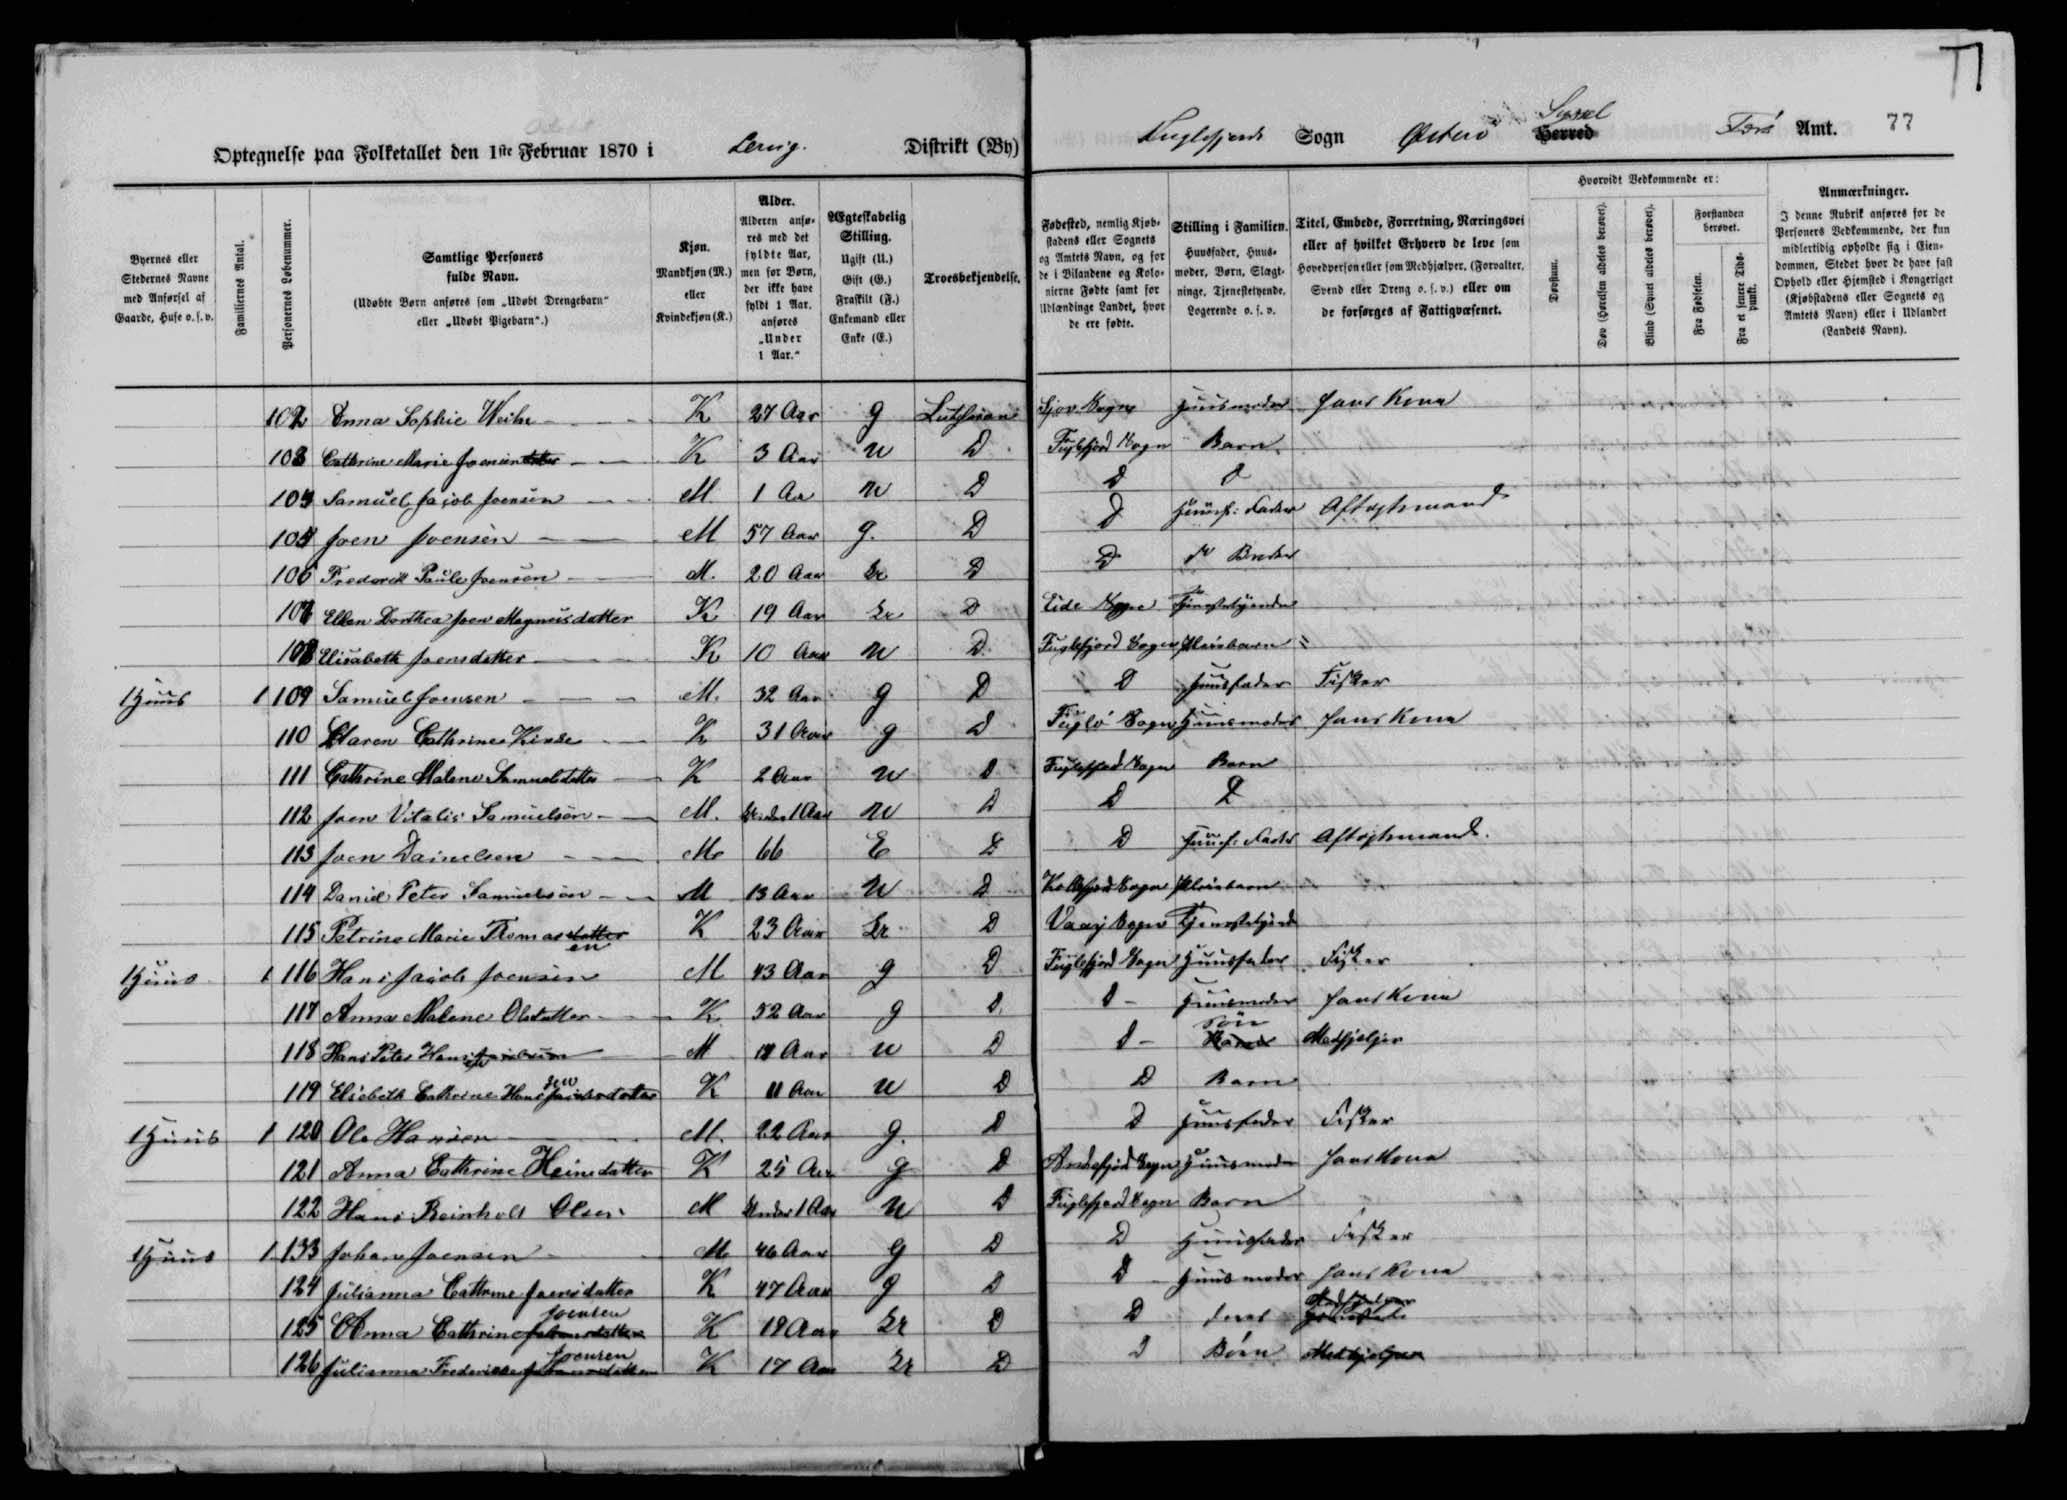 77
Optegnelse paa Folketallet den 1ste Februar 1870 i Lervig. Distrikt (By) Fuglefjord Sogn Østerø Herred Syssel Færø Amt. 77
Byernes eller Stedernes Navne med Anførsel af Gaarde, Huse o. s. v.
Familiernes Antal.
Personernes Løbenummer.
Samtlige Personers fulde Navn. (Udøbte Børn anføres som „Udøbt Drengebarn“ eller „Udøbt Pigebarn“.)
Kjøn. Mandkjøn (M.) eller Kvindekjøn (K.)
Alder. Alderen anføres med det fyldte Aar, men for Børn, der ikke have fyldt 1 Aar. anføres „Under 1 Aar.“
Ægteskabelig Stilling. Ugift (U.) Gift (G.) Fraskilt (F.) Enkemand eller Enke (E.)
Troesbekjendelse.
Fødested, nemlig Kjøbstadens eller Sognets og Amtets Navn, og for de i Bilandene og Kolonierne Fødte samt for Udlændinge Landet, hvor de ere fødte.
Stilling i Familien. Huusfader, Huusmoder, Børn, Slægtninge, Tjenestetyende, Logerende o. s. v.
Titel, Embede, Forretning, Næringsvei eller af hvilket Erhverv de leve som Hovedperson eller som Medhjælper, (Forvalter, Svend eller Dreng o. s. v.) eller om de forsørges af Fattigvæsenet.
Hvorvidt Vedkommende er:
Døvstum.
Døv (Hørelsen aldeles berøvet).
Blind (Synet aldeles berøvet).
Forstanden berøvet.
Fra Fødselen.
Fra et senere Tidspunkt.
Anmærkninger. I denne Rubrik anføres for de Personers Vedkommende, der kun midlertidig opholde sig i Eiendommen, Stedet hvor de have fast Ophold eller Hjemsted i Kongeriget (Kjøbstadens eller Sognets og Amtets Navn) eller i Udlandet (Landets Navn).
102 Anna Sophie Weihe K 27 Aar g Luthersan Sjov Sogn Huusmoder hans Kona
103 Cathrine Marie Joensen K 3 Aar u D Fuglefjord Sogn Barn
104 Samuel Jacob Joensen M 1 Aar u D D D
105 Joen Joensen M 57 Aar g. D D Huusf: Fader Aftægtsmand
106 Frederik Paule Joensen M. 20 Aar D D Broder
107 Ellen Dorthea Joen Magnusdatter K 19 Aar D Eide Sogn Tjenestetyende
108 Elisabeth Joensdatter K 10 Aar u D Fuglefjord Sogn Pleiebarn
1 Huus 1 109 Samuel Joensen M. 32 Aar g D D Huusfader Fisker
110 Maren Cathrine K 31 Aar g D Fuglø Sogn Huusmoder hans Kona
111 Cathrine Malene Samuelsdatter K 2 Aar u D Fuglefjord Sogn Barn
112 Joen Vitalis Samuelsen M. Under 1 Aar u D D D
113 Joen Dainelsen M 66 E D D Huusf: Fader Aftægtsmand.
114 Daniel Peter Samuelsen M 13 Aar u D Kollefjord Sogn Pleiebarn
115 Petrine Marie Thomasdatter en K 23 Aar D Vaag Sogn Tjenestetyende
1 Huus 1 116 Hans Jacob Joensen M 43 Aar g D Fuglefjord Sogn Huusfader Fisker
117 Anna Malene Olsdatter K 52 Aar g D D Huusmoder hans Kona
118 Hans Peter Hans M 18 Aar u D D Barn Søn Medhjælper
119 Elsebeth Cathrine Hans K 11 Aar u D D Barn
1 Huus 1 120 Ole Hansen M. 22 Aar g. D D Huusfader Fisker
121 Anna Cathrine Heinsdatter K 25 Aar g D Andefjord Sogn Huusmoder hans Kona
122 Hans Reinholt Olsen M Under 1 Aar u D Fuglefjord Sogn Barn
1 Huus 1 133 Johan Joensen M 46 Aar g D D Huusfader Fisker
124 Julianna Cathrine Joensdatter K 47 Aar g D D Huusmoder hans Kona
125 Anna Cathrine Johansdatter Joensen K 19 Aar D D deres
126 Julianna Frederikke Johansdatter Joensen K 17 Aar D D Børn Medhjelper